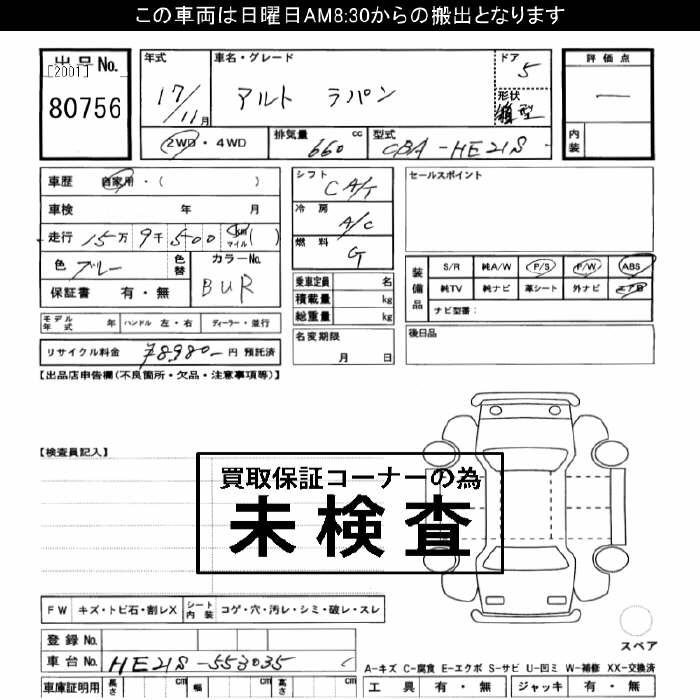 この車両は日曜日AM8:30からの搬出となります
出品No.
[2001]
80756
年式
17/11月
車名・グレード
アルト ラパン
ドア
5
形状
箱型
評価点
―
内装
2WD・4WD
排気量 cc
660
型式
CBA-HE21S
車歴 自家用・( )
車検 年 月
走行 15万9千500 km マイル ( )
色 ブルー
色替
カラーNo.
BUR
保証書 有・無
シフト
CA/T
冷房
A/C
燃料
G
乗車定員 名
積載量 kg
総重量 kg
セールスポイント
装備品
S/R 純A/W P/S P/W ABS
純TV 純ナビ 革シート 外ナビ エアB
ナビ型番:
モデル年式 年
ハンドル 左・右
ディーラー・並行
名変期限
月 日
後日品
リサイクル料金 ¥8,980- 円 預託済
【出品店申告欄(不良箇所・欠品・注意事項等)】
【検査員記入】
買取保証コーナーの為
未検査
FW キズ・トビ石・割レX
シート内装 コゲ・穴・汚レ・シミ・破レ・スレ
登録No.
車台No. HE21S-553035
スペア
A-キズ C-腐食 E-エクボ S-サビ U-凹ミ W-補修 XX-交換済
車庫証明用 長さ cm 幅 cm 高さ cm
工具 有・無
ジャッキ 有・無